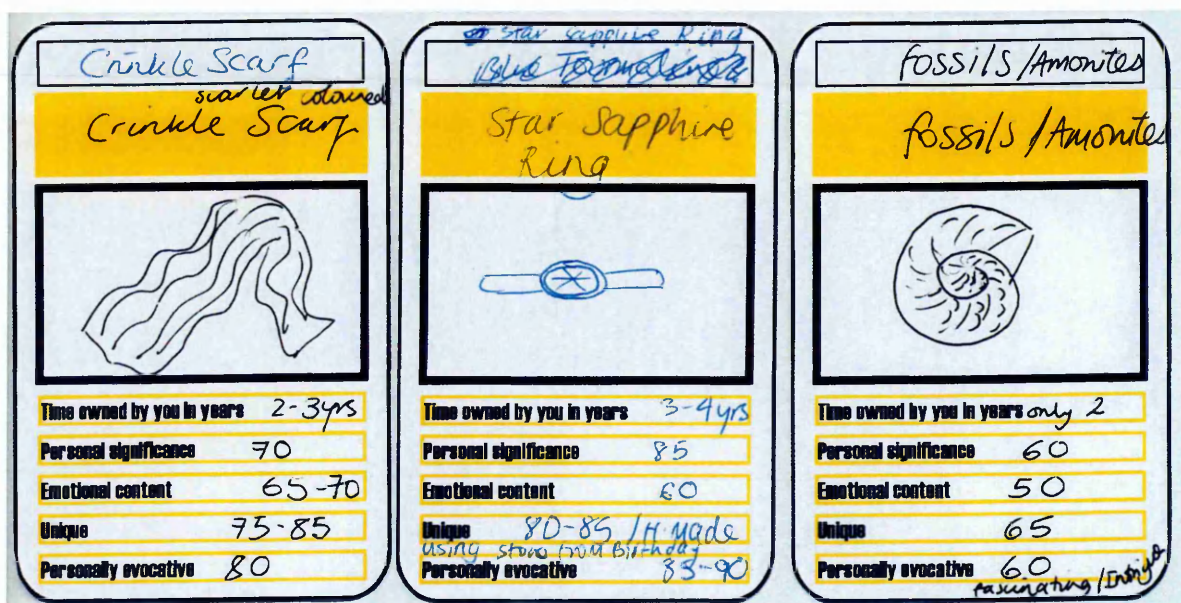 Crinkle Scarf
scarlet coloured
Crinkle Scarf
Time owned by you in years 2-3yrs
Personal significance 70
Emotional content 65-70
Unique 75-85
Personally evocative 80
Star Sapphire Ring
Star Sapphire
Ring
Time owned by you in years 3-4yrs
Personal significance 85
Emotional content 60
Unique 80-85 / H.made
using stone from Birthday
Personally evocative 85-90
Fossils/Amonites
Fossils/Amonites
Time owned by you in years only 2
Personal significance 60
Emotional content 50
Unique 65
Personally evocative 60
fascinating/